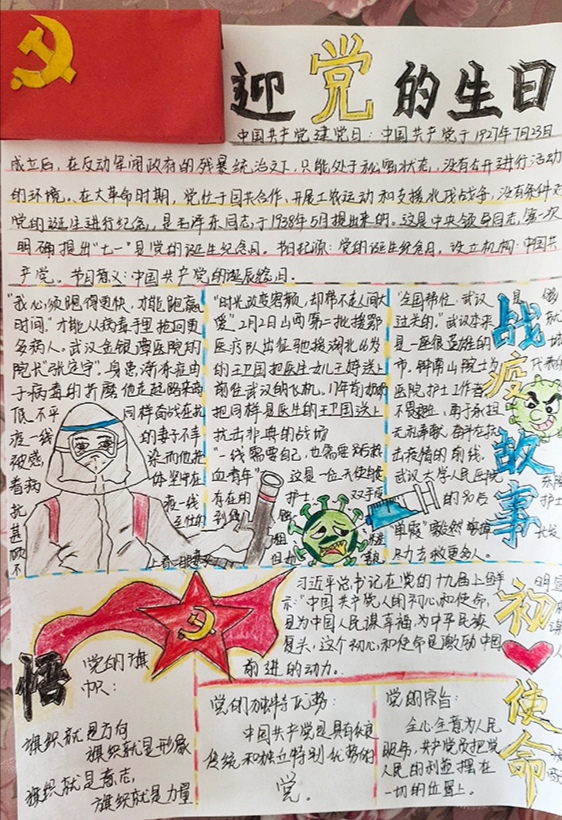 迎党的生日
中国共产党建党日：中国共产党于1921年7月23日
成立后，在反动军阀政府的残暴统治之下，只能处于秘密状态，没有公开进行活动
的环境。在大革命时期，党忙于国共合作、开展工农运动和支援北伐战争，没有条件对
党的诞生进行纪念，是毛泽东同志于1938年5月提出来的。这是中央领导同志第一次
明确提出"七一"是党的诞生纪念日。节日起源：党的诞生纪念日，设立机构：中国共
产党。节日意义：中国共产党的诞辰纪念日。
"我必须跑得更快，才能跑赢
时间。"才能从病毒手里抢回更
多病人。武汉金银潭医院的
院长"张定宇"，身患渐冻症由
于病毒的折磨他走起路来高
低不平 同样奋战在抗
疫一线 的妻子不幸
被感 染而他
看病 体坚持在
抗 疫一线
甚
顾
不
"时光改变容颜，却带不走人间大
爱"2月2日山西第二批援鄂
医疗队出征驰援湖北46岁
的王卫国把医生女儿王婷送上
前往武汉的飞机，17年前
把同样是医生的王卫国送上
抗击非典的战场
"一线需要自己，也需要
血青年" 这是一位天使
存在的 护士 双手
"全国稀忙，武汉 是
过关的。"武汉本来
是一座很英雄的 城
市，钟南山院士为 代表的
医院护士工作者
不畏艰险，勇于承担
无私奉献，奋斗在抗
击疫情的前线。
武汉大学人民医院 东院
的90后 护士
单霞"毅然
尽力去救更多人。
战疫故事
习近平总书记在党的十九届上鲜 明
示："中国共产党人的初心和使命，
是为中国人民谋幸福，为中华民族
复兴，这个初心和使命是激励中国
前进的动力。
初心使命
悟
党的旗
帜：
旗帜就是方向
旗帜就是形象
旗帜就是意志，
旗帜就是力量
党的独特优势：
中国共产党是具有优良
传统和独立特别优势的
党。
党的宗旨：
全心全意为人民
服务，共产党员把党
人民的利益摆在
一切的位置上。